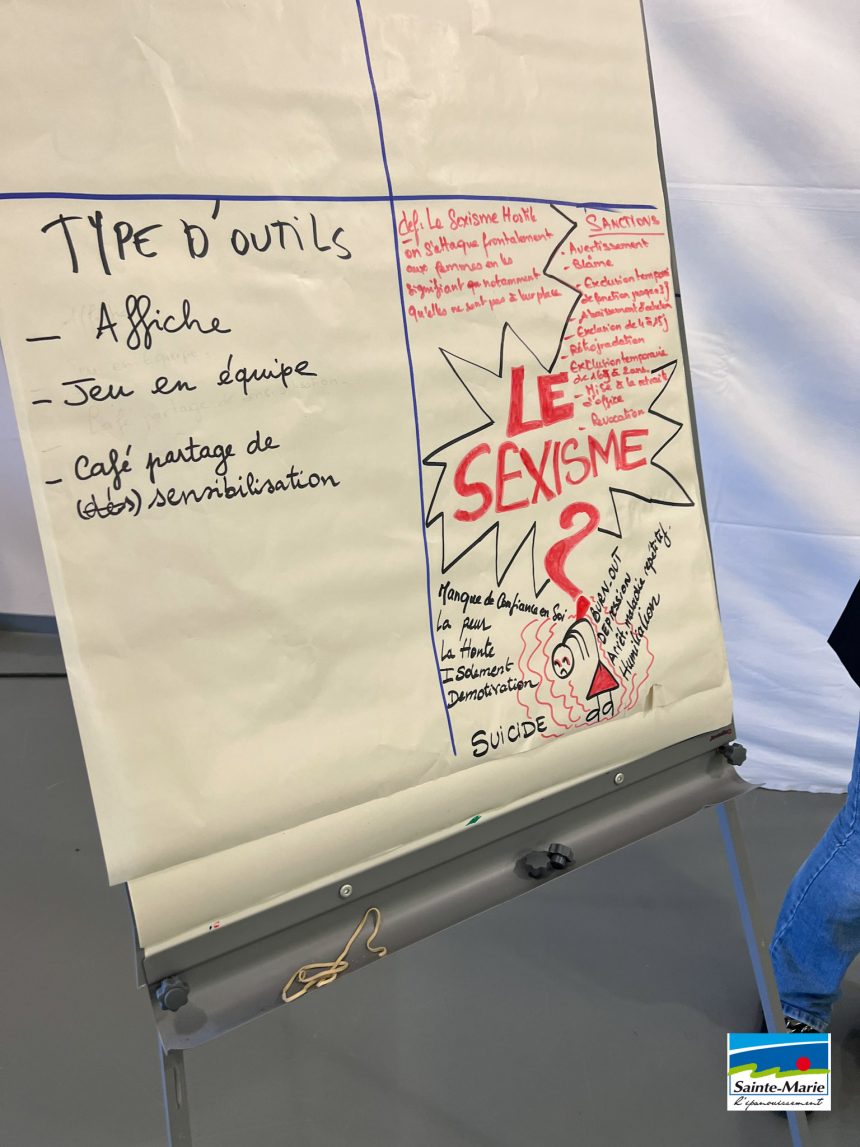 TYPE D'OUTILS
- Affiche
- Jeu en équipe
- Café partage de
sensibilisation
def: Le Sexisme Hostile
on s'attaque frontalement
aux femmes en les
signifiant que notamment
qu'elles ne sont pas à leur place
SANCTIONS
- Avertissement
- Blâme
- Exclusion
de fonction
- Abaissement d'échelon
- Exclusion de 4 à 15j
- Rétrogradation
Exclusion temporaire
de 16j à 2ans
- Mise à la retraite
d'office
- Revocation
LE
SEXISME
?
Manque de Confiance en Soi
La peur
La Honte
Isolement
Demotivation
SUICIDE
BURN-OUT
DEPRESSION
Arêt maladie répétitif.
Humiliation
Sainte-Marie
l'épanouissement